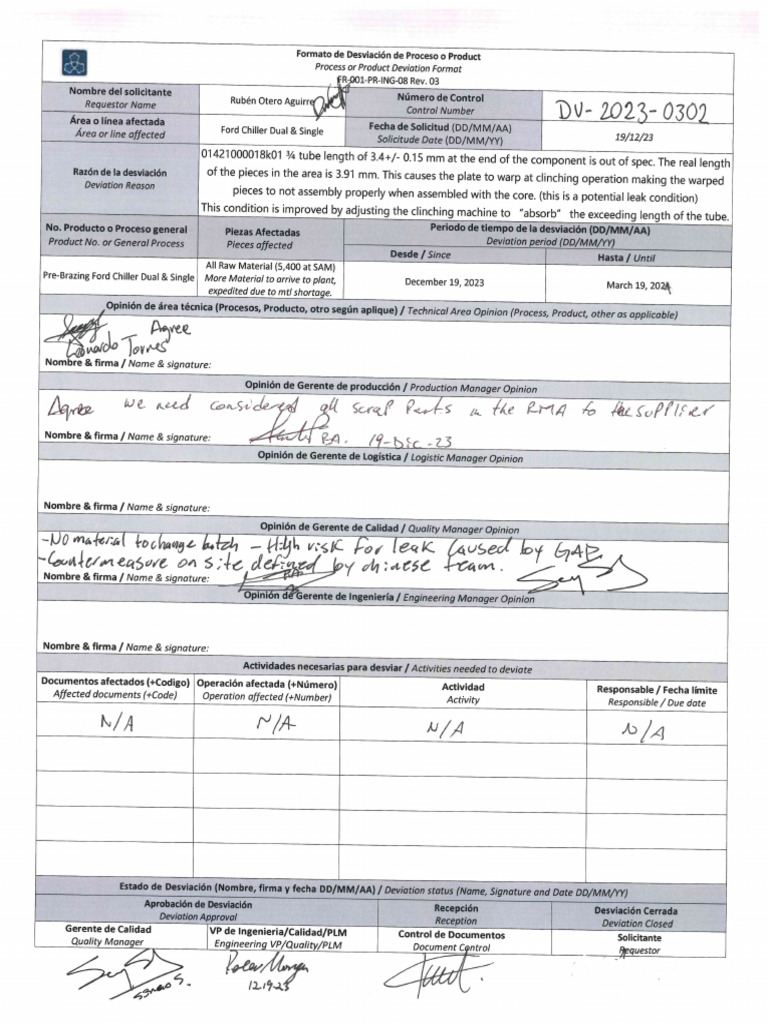 Formato de Desviación de Proceso o Product
Process or Product Deviation Format
FR-001-PR-ING-08 Rev. 03
Nombre del solicitante
Requestor Name
Rubén Otero Aguirre
Número de Control
Control Number
DV-2023-0302
Área o línea afectada
Área or line affected
Ford Chiller Dual & Single
Fecha de Solicitud (DD/MM/AA)
Solicitude Date (DD/MM/YY)
19/12/23
Razón de la desviación
Deviation Reason
01421000018k01 ¾ tube length of 3.4+/- 0.15 mm at the end of the component is out of spec. The real length
of the pieces in the area is 3.91 mm. This causes the plate to warp at clinching operation making the warped
pieces to not assembly properly when assembled with the core. (this is a potential leak condition)
This condition is improved by adjusting the clinching machine to “absorb” the exceeding length of the tube.
No. Producto o Proceso general
Product No. or General Process
Piezas Afectadas
Pieces affected
Periodo de tiempo de la desviación (DD/MM/AA)
Deviation period (DD/MM/YY)
Desde / Since
Hasta / Until
Pre-Brazing Ford Chiller Dual & Single
All Raw Material (5,400 at SAM)
More Material to arrive to plant,
expedited due to mtl shortage.
December 19, 2023
March 19, 2024
Opinión de área técnica (Procesos, Producto, otro según aplique) / Technical Area Opinion (Process, Product, other as applicable)
Agree
Leonardo Torres
Nombre & firma / Name & signature:
Opinión de Gerente de producción / Production Manager Opinion
Agree we need considered all scrap Parts in the RMA to the supplier
Nombre & firma / Name & signature: BA. 19-Dic-23
Opinión de Gerente de Logística / Logistic Manager Opinion
Nombre & firma / Name & signature:
Opinión de Gerente de Calidad / Quality Manager Opinion
-No material to change batch - High risk for leak caused by GAP.
-Countermeasure on site defined by chinese team.
Nombre & firma / Name & signature:
Opinión de Gerente de Ingeniería / Engineering Manager Opinion
Nombre & firma / Name & signature:
Actividades necesarias para desviar / Activities needed to deviate
Documentos afectados (+Codigo)
Affected documents (+Code)
Operación afectada (+Número)
Operation affected (+Number)
Actividad
Activity
Responsable / Fecha límite
Responsible / Due date
N/A N/A N/A N/A
Estado de Desviación (Nombre, firma y fecha DD/MM/AA) / Deviation status (Name, Signature and Date DD/MM/YY)
Aprobación de Desviación
Deviation Approval
Recepción
Reception
Desviación Cerrada
Deviation Closed
Gerente de Calidad
Quality Manager
VP de Ingenieria/Calidad/PLM
Engineering VP/Quality/PLM
Control de Documentos
Document Control
Solicitante
Requestor
12.19.23